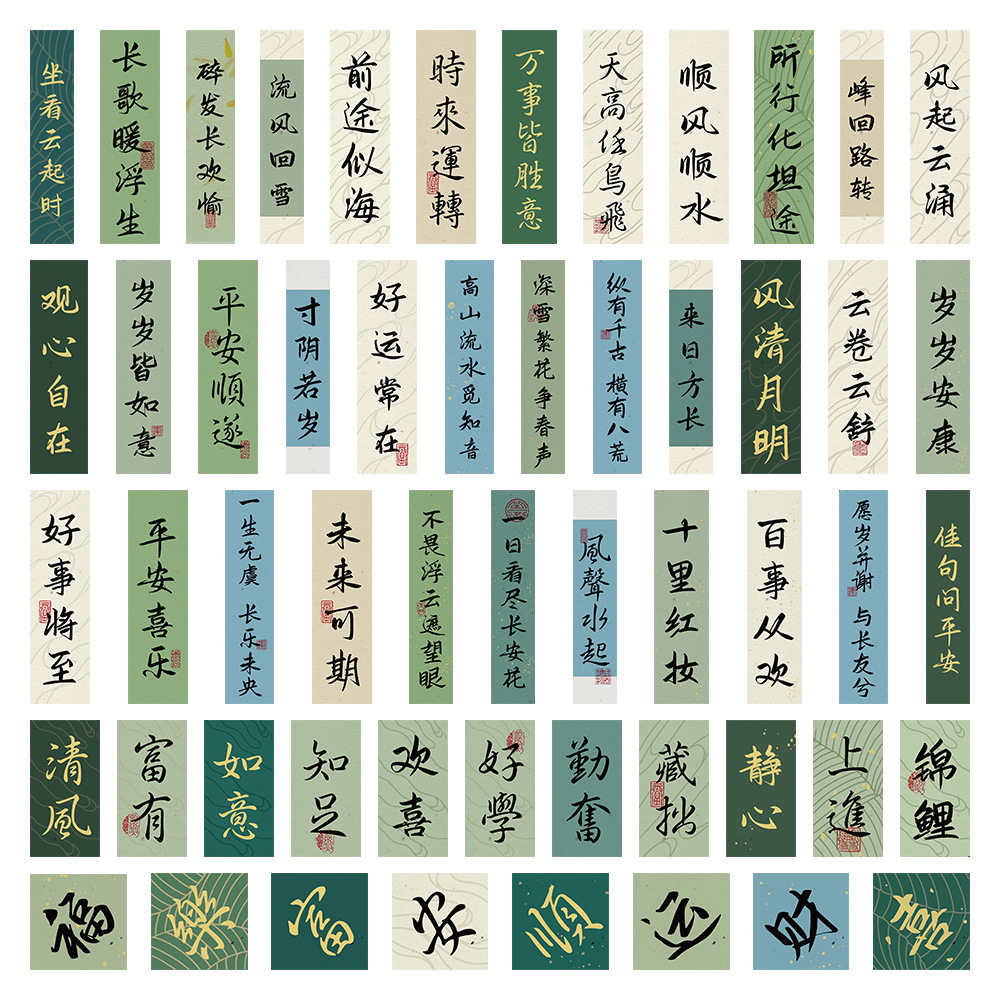 坐看云起时
长歌暖浮生
碎发长欢愉
流风回雪
前途似海
時來運轉
万事皆胜意
天高任鸟飛
顺风顺水
所行化坦途
峰回路转
风起云涌
观心自在
岁岁皆如意
平安順遂
寸阴若岁
好运常在
高山流水觅知音
深雪繁花争春声
纵有千古 横有八荒
来日方长
风清月明
云卷云舒
岁岁安康
好事将至
平安喜乐
一生无虞 长乐未央
未来可期
不畏浮云遮望眼
一日看尽长安花
風聲水起
十里红妆
百事从欢
愿岁并谢 与长友兮
佳句问平安
清風
富有
如意
知足
欢喜
好學
勤奮
藏拙
静心
上進
锦鲤
福
樂
富
安
順
财
喜